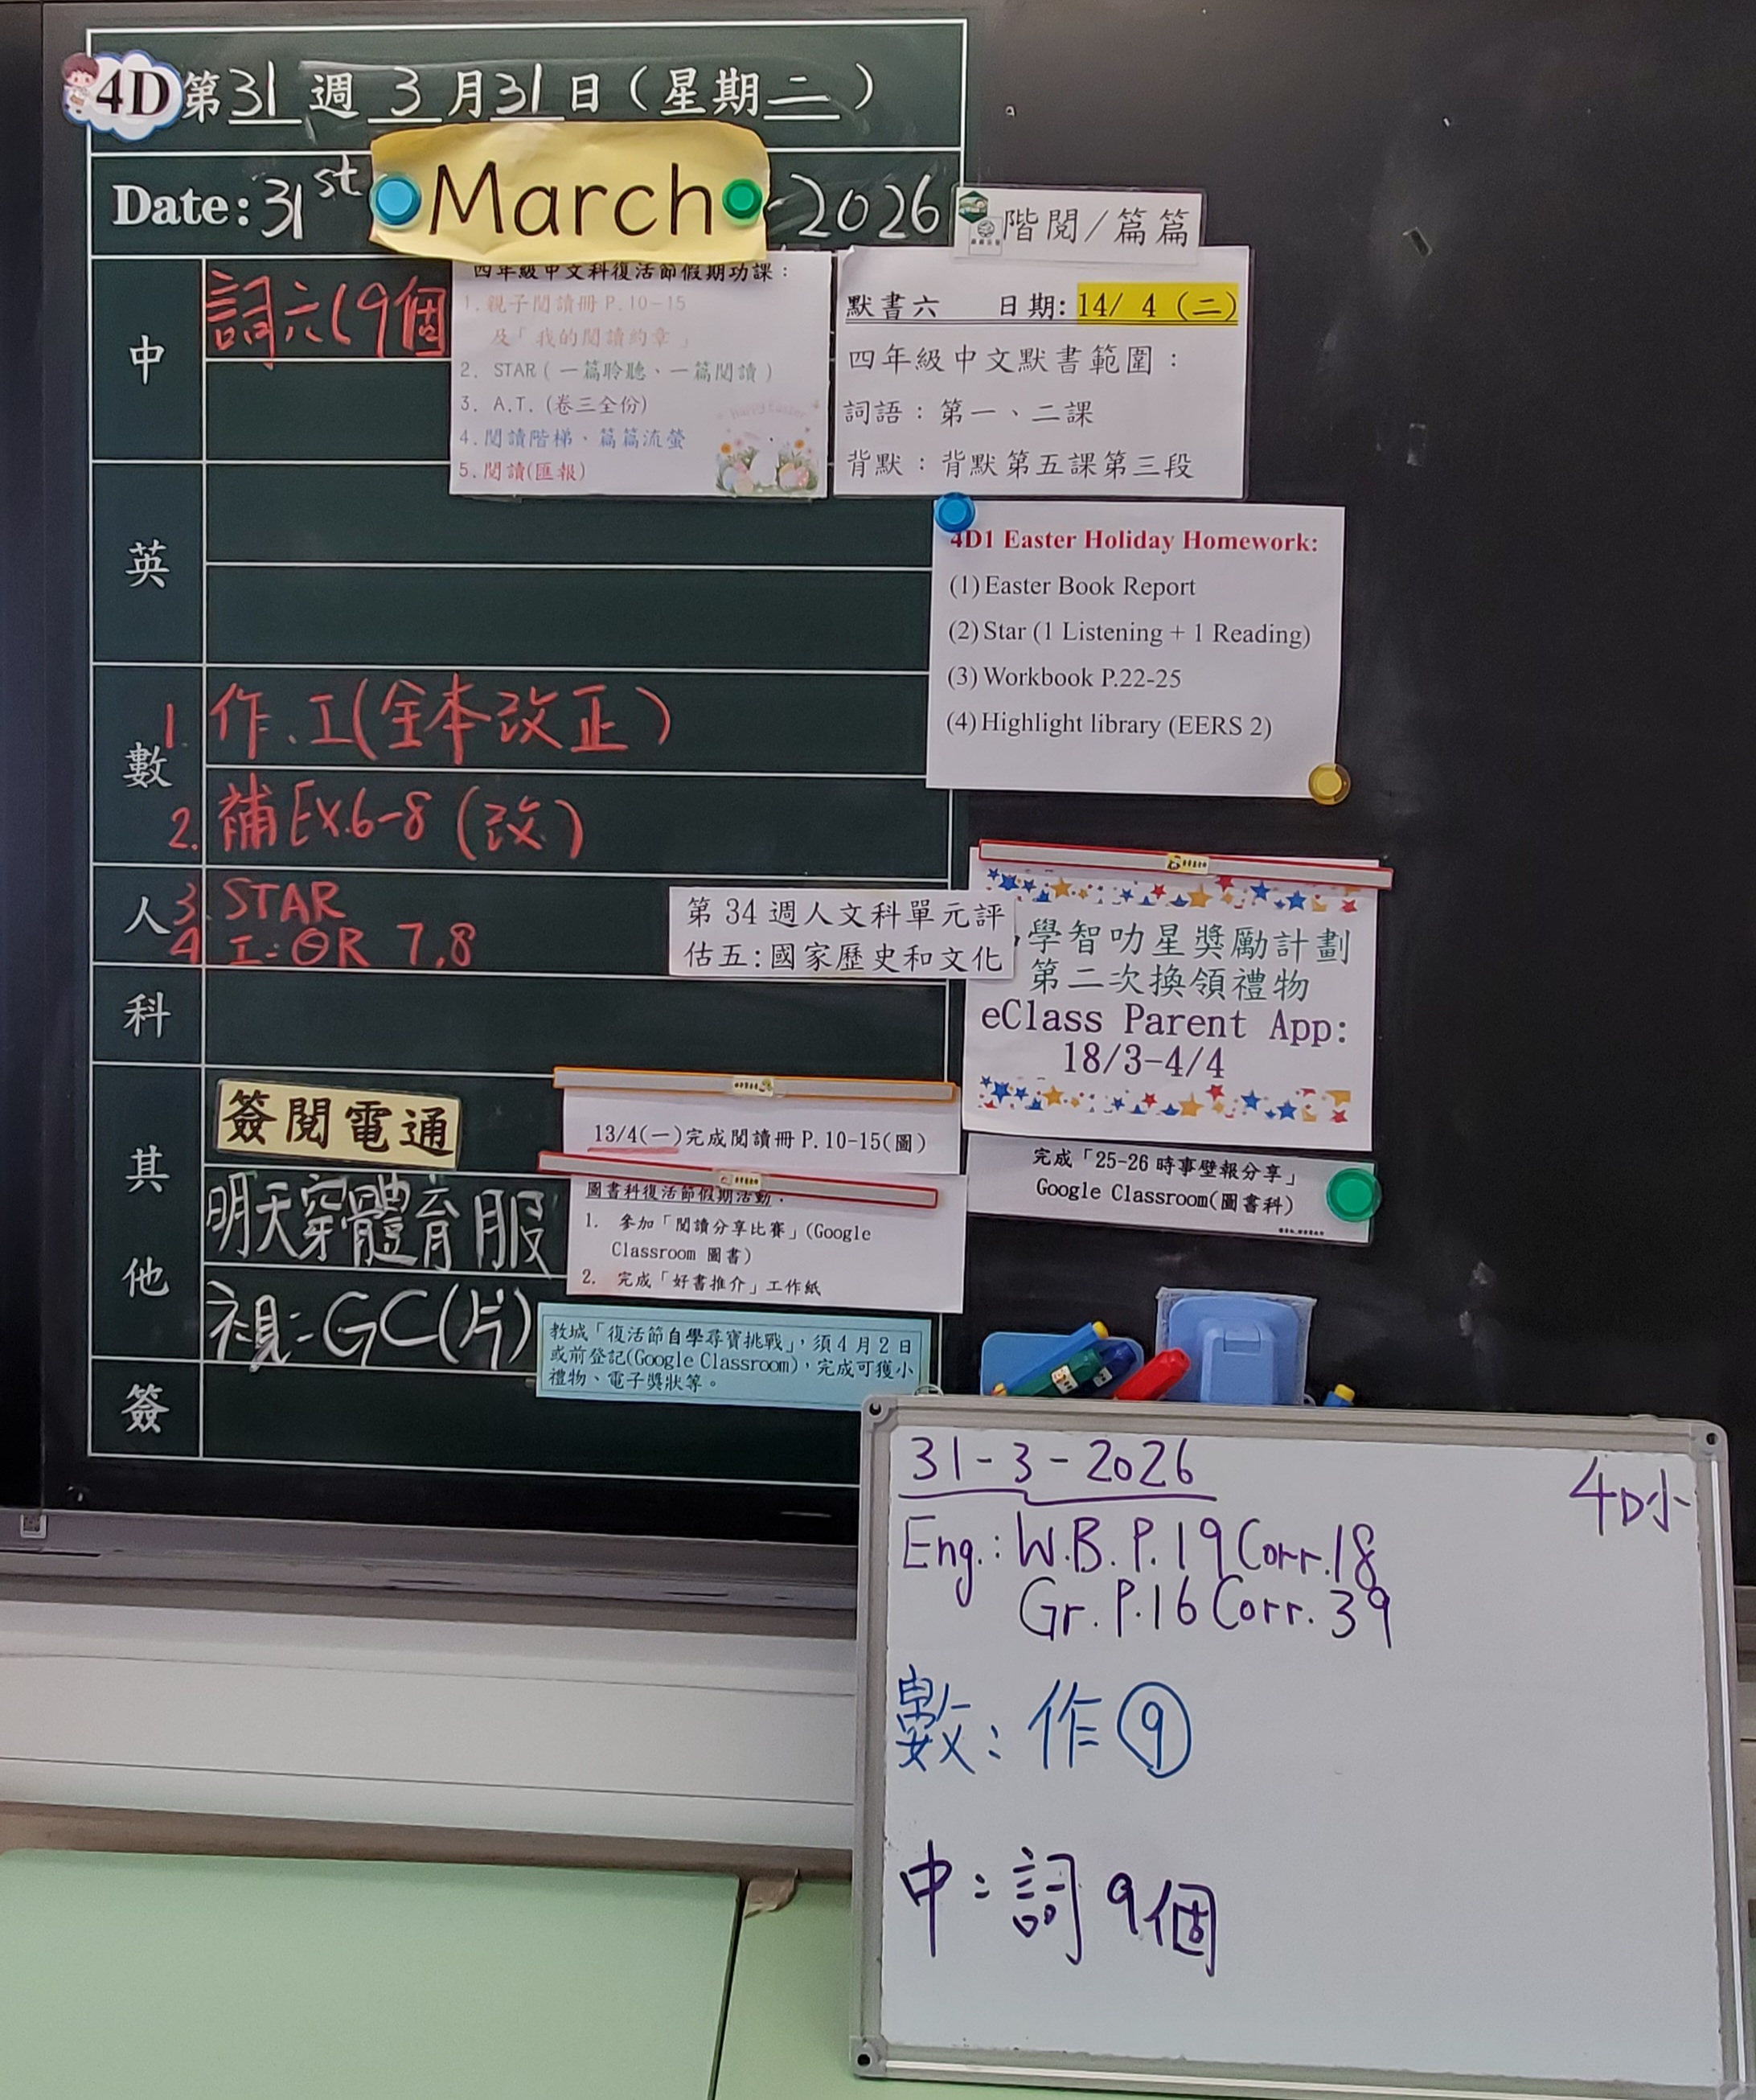 4D 第 31 週 3 月 31 日 ( 星期 二 )
Date: 31st March 2026
階閱/篇篇
中
詞六(9個
四年級中文科復活節假期功課：
1. 親子閱讀冊 P.10-15
及「我的閱讀約章」
2. STAR ( 一篇聆聽、一篇閱讀 )
3. A.T. (卷三全份)
4. 閱讀階梯、篇篇流螢
5. 閱讀(匯報)
Happy Easter
默書六 日期: 14/ 4 (二)
四年級中文默書範圍：
詞語：第一、二課
背默：背默第五課第三段
英
4D1 Easter Holiday Homework:
(1) Easter Book Report
(2) Star (1 Listening + 1 Reading)
(3) Workbook P.22-25
(4) Highlight library (EERS 2)
數
1. 作.工(全本改正)
2. 補Ex.6-8 (改)
3. STAR
4. 工: QR 7,8
人
科
第 34 週人文科單元評
估五:國家歷史和文化
學智叻星獎勵計劃
第二次換領禮物
eClass Parent App:
18/3-4/4
其
他
簽閱電通
明天穿體育服
視: GC(片)
13/4(一)完成閱讀冊 P.10-15(圖)
圖書科復活節假期活動：
1. 參加「閱讀分享比賽」(Google
Classroom 圖書)
2. 完成「好書推介」工作紙
完成「25-26 時事壁報分享」
Google Classroom(圖書科)
教城「復活節自學尋寶挑戰」，須 4 月 2 日
或前登記(Google Classroom)，完成可獲小
禮物、電子獎狀等。
簽
31-3-2026
4D小
Eng.: W.B. P.19 Corr.18
Gr. P.16 Corr. 39
數: 作⑨
中: 詞 9個